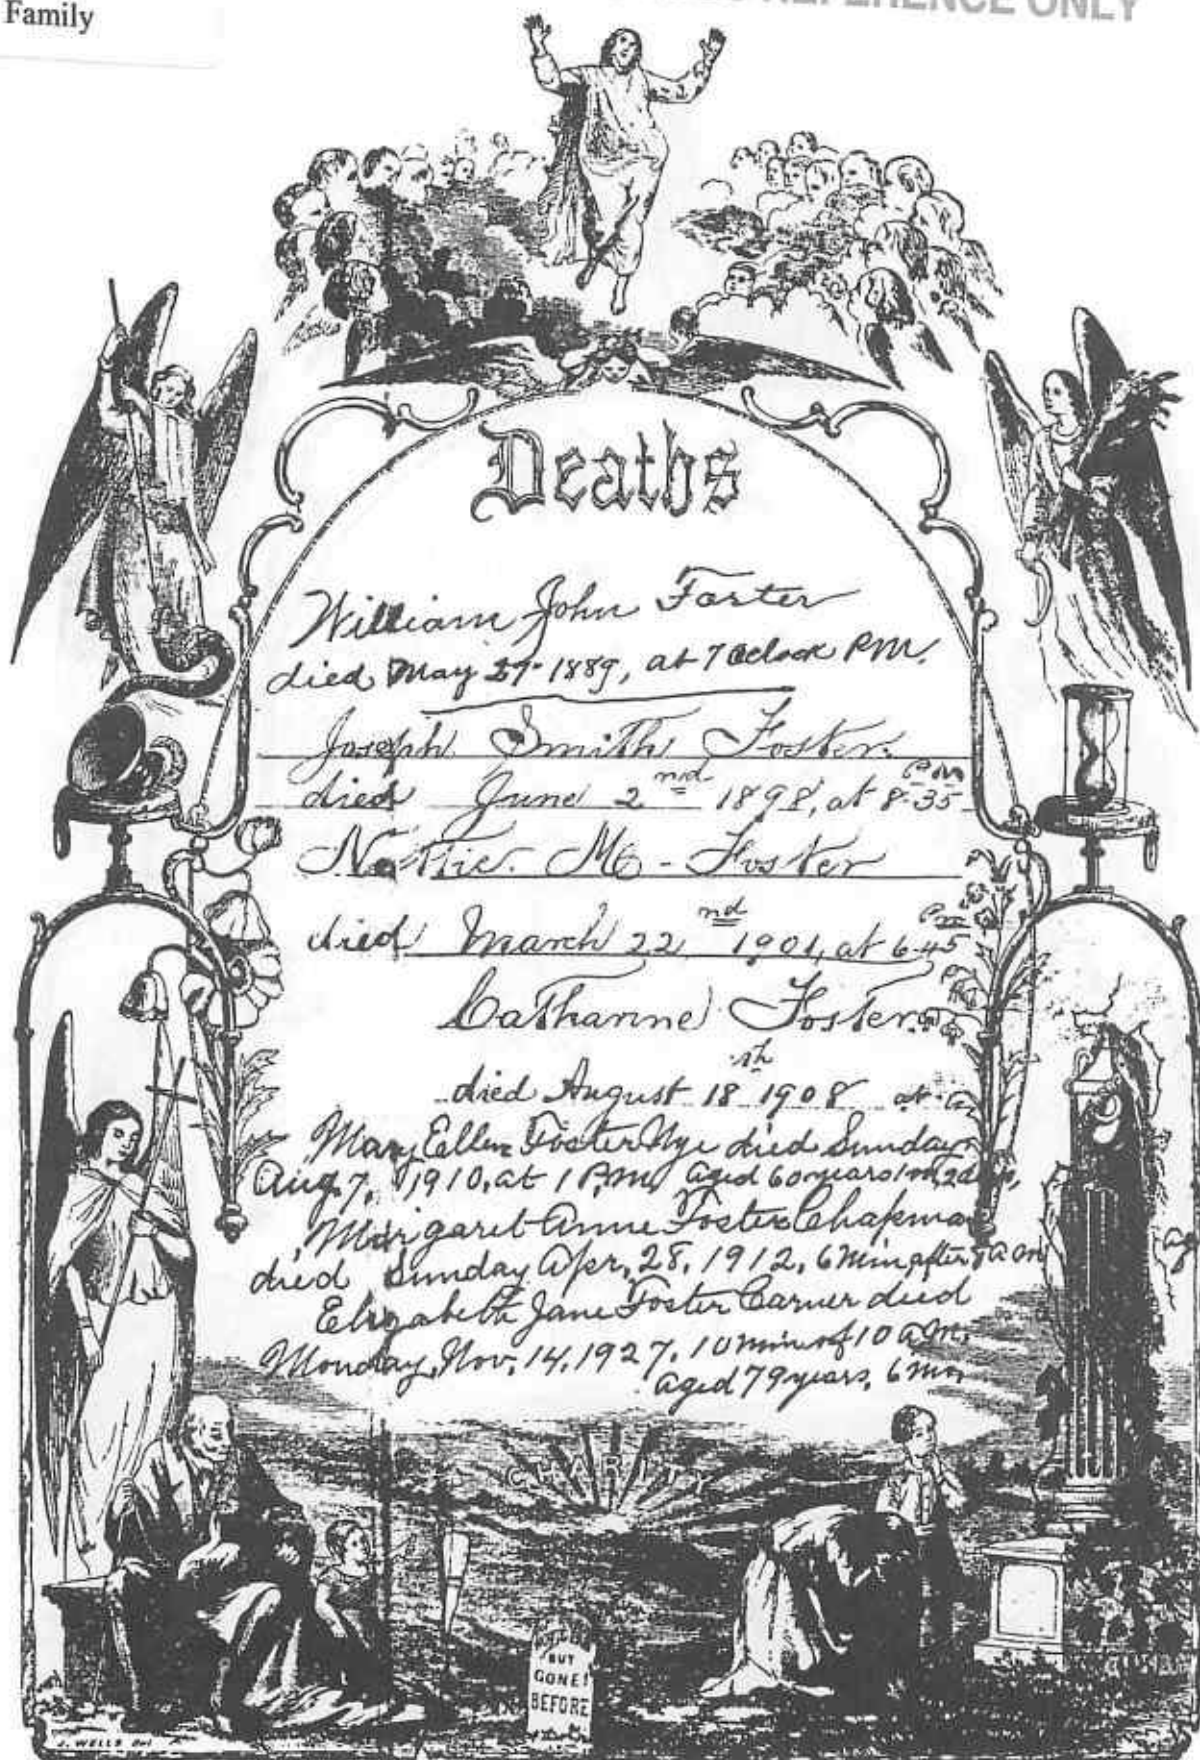 Family
REFERENCE ONLY
Deaths
William John Foster
died May 27 1889, at 7 Oclock P.M.
Joseph Smith Foster.
died June 2nd 1898, at 8.35 P.M
Nettie. M - Foster
died March 22nd 1901, at 6.45 P.M
Catharine Foster
died August 18th 1908 at
Mary Ellen Foster Nye died Sunday
Aug. 7, 1910, at 1 P.M. Aged 60 years 1 m, 2 d
Margaret Anne Foster Chapman
died Sunday Apr, 28, 1912, 6 min after 8 a m
Elizabeth Jane Foster Carner died
Monday, Nov, 14, 1927, 10 min of 10 a.m.
aged 79 years, 6 mo
CHARITY
BUT
GONE!
BEFORE
J. WELLS Del